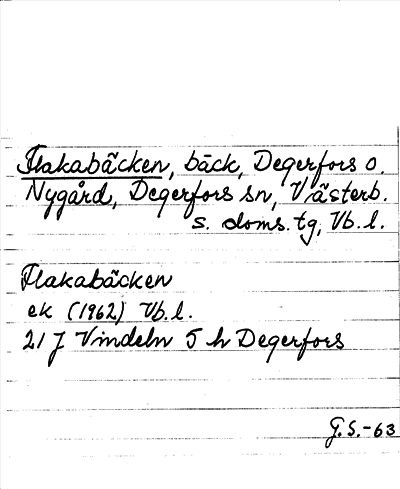 Flakabäcken, bäck, Degerfors o.
Nygård, Degerfors sn, Västerb.
s. doms. tg, Vb. l.
Flakabäcken
ek (1962) Vb. l.
21 J Vindeln 5 h Degerfors
G.S.-63